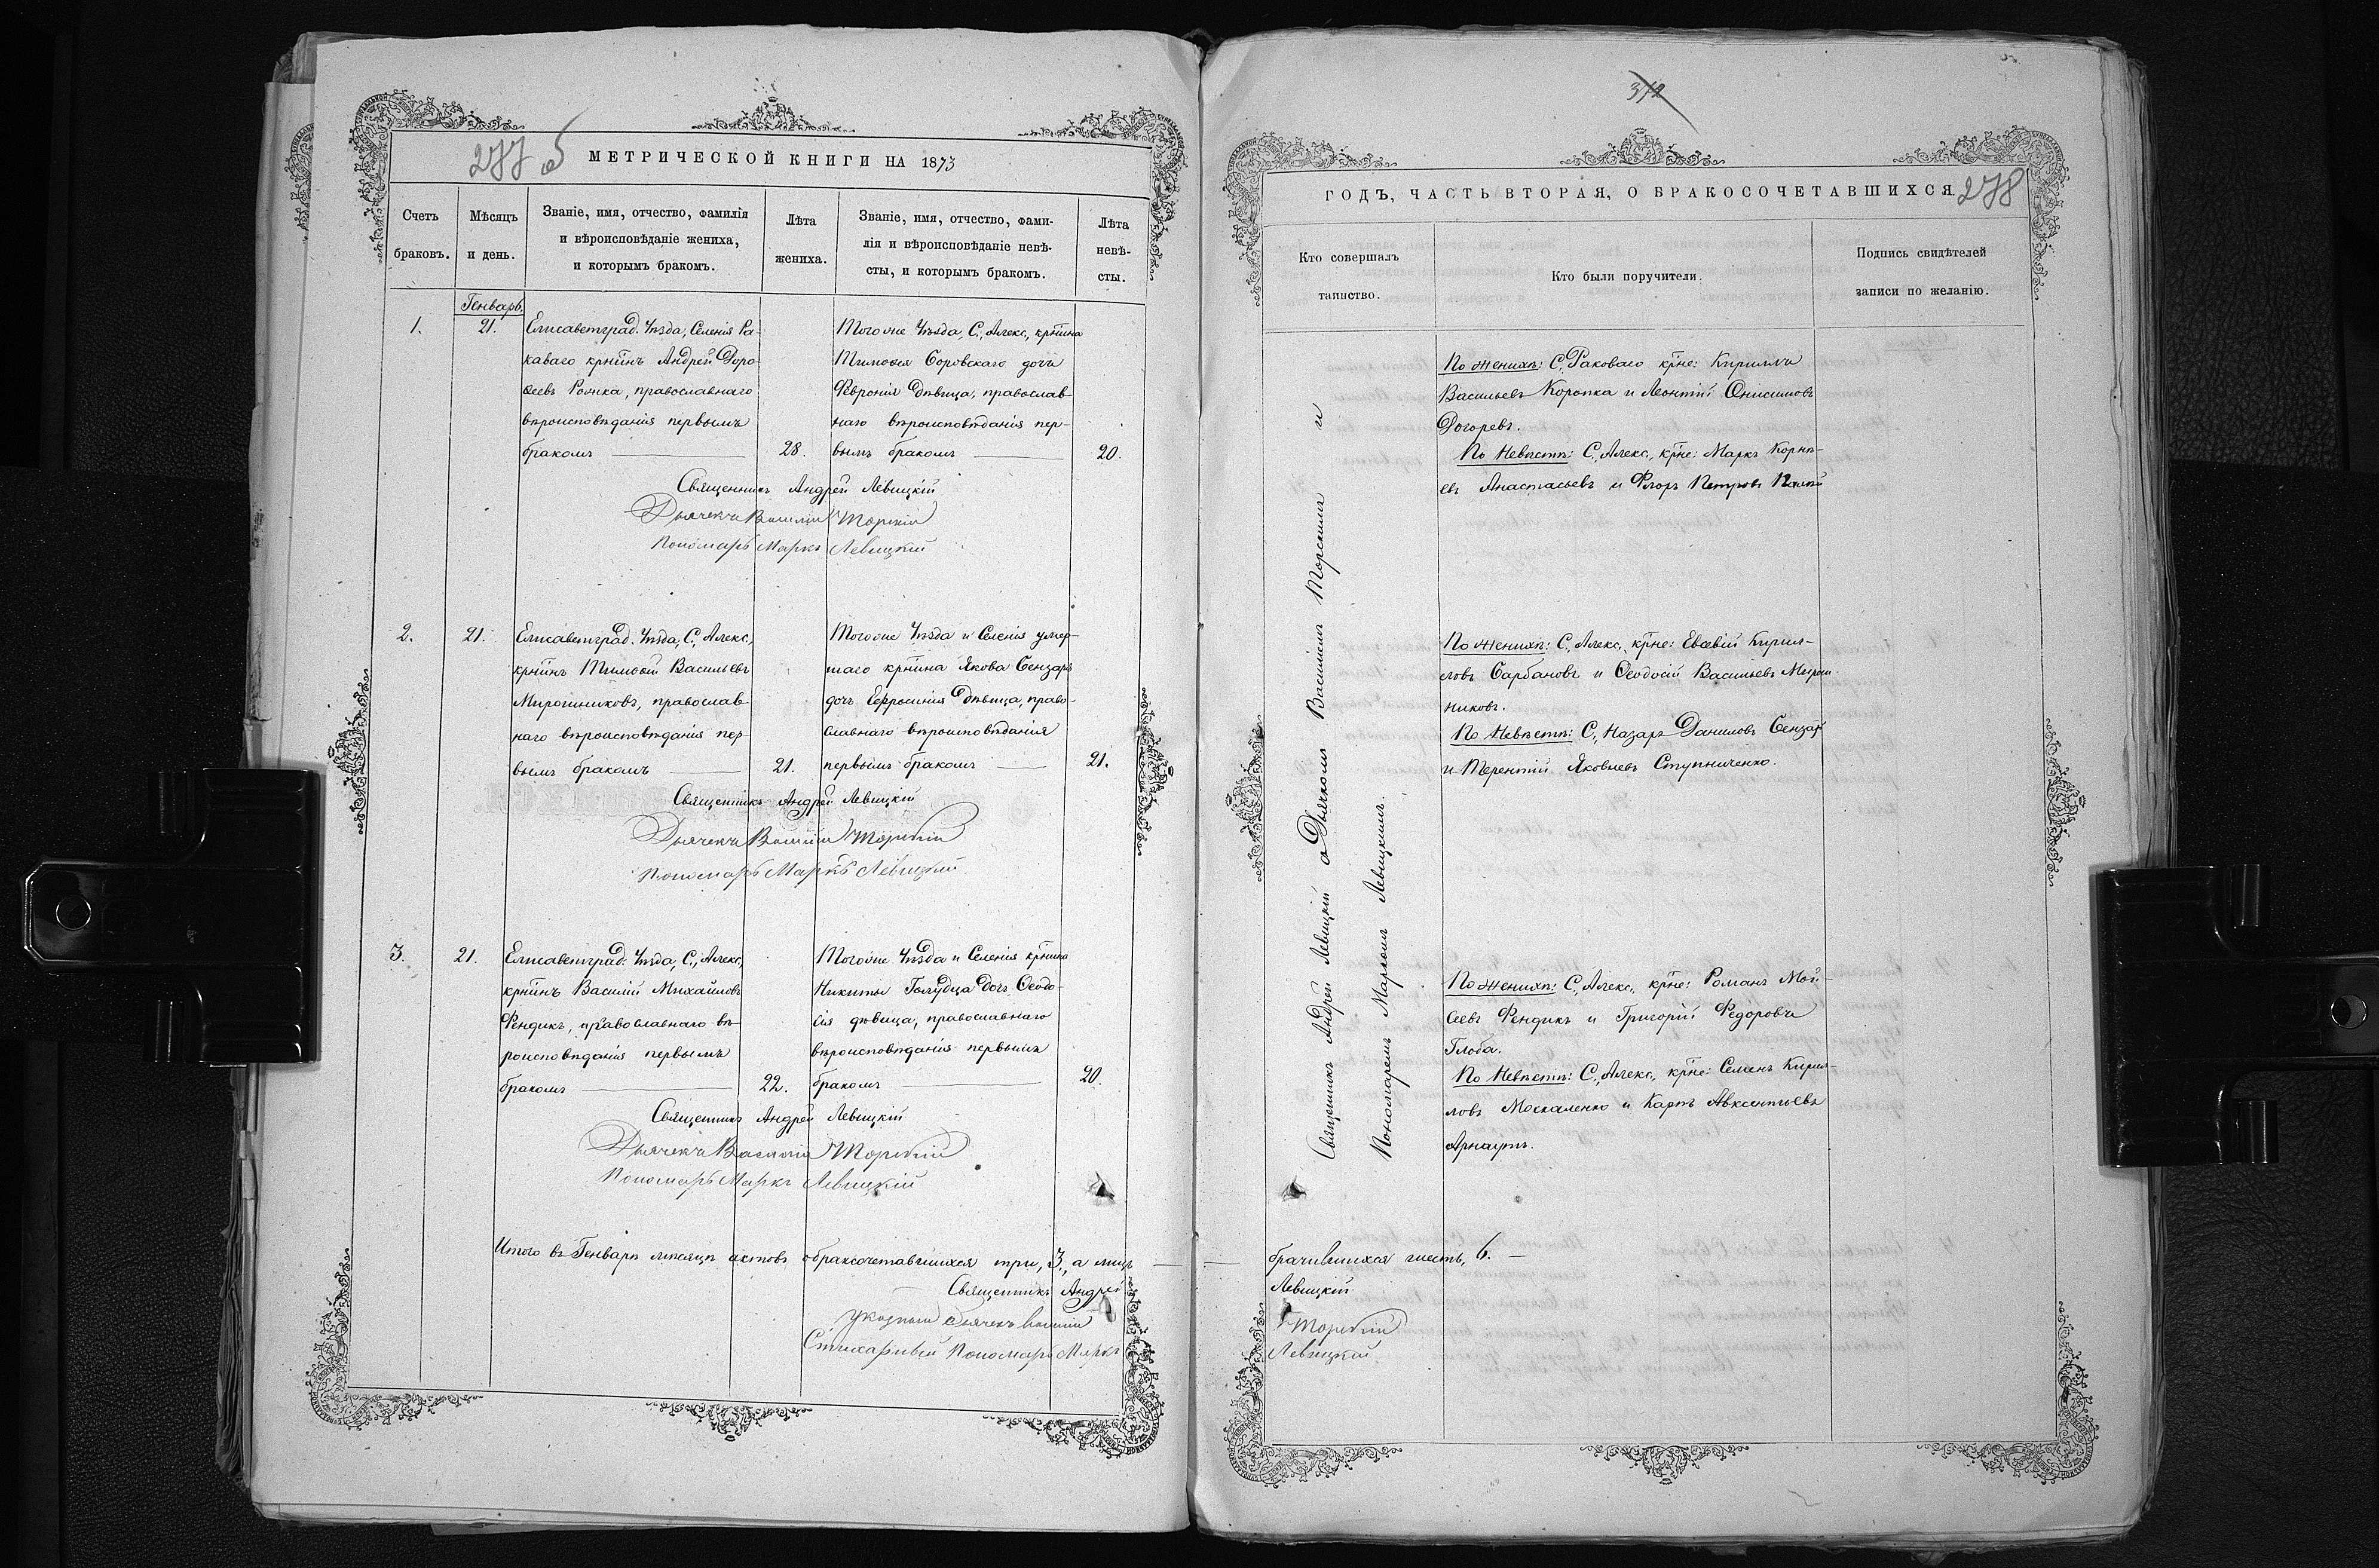 277 об
МЕТРИЧЕСКОЙ КНИГИ НА 1873
Счетъ
браковъ.
Мѣсяцъ
и день.
Званіе, имя, отчество, фамилія
и вѣроисповѣданіе жениха,
и которымъ бракомъ.
Лѣта
жениха.
Званіе, имя, отчество, фами-
лія и вѣроисповѣданіе невѣ-
сты, и которымъ бракомъ.
Лѣта
невѣ-
сты.
Генварь
1.
21.
Елисаветград. Уѣзда, Селенія Ра-
каваго крнинъ Андрей Доро-
ѳеевъ Рожка, православнаго
вѣроисповѣданія первымъ
бракомъ
28.
Того же Уѣзда, С, Алекс, крнина
Тимоѳея Боровскаго дочь
Ѳевронія Дѣвица, православ-
наго вѣроисповѣданія пер-
вымъ бракомъ
20.
Священникъ Андрей Левицкій
Дьячекъ Василій Торскій
Пономарь Маркъ Левицкій
2.
21.
Елисаветград. Уѣзда, С, Алекс,
крнинъ Тимоѳей Васильевъ
Мирошниковъ, православ-
наго вѣроисповѣданія пер-
вымъ бракомъ
21.
Тогоже Уѣзда и Селенія умер-
шаго крнина Якова Сензаръ
дочь Ефросинія Дѣвица, право-
славнаго вѣроисповѣданія
первымъ бракомъ
21.
Священникъ Андрей Левицкій
Дьячекъ Василій Торскій
Пономарь Маркъ Левицкій
3.
21.
Елисаветград. Уѣзда, С, Алекс,
крнинъ Василій Михайловъ
Фендикъ, православнаго вѣ-
роисповѣданія первымъ
бракомъ
22.
Тогоже Уѣзда и Селенія крнина
Никиты Голубца дочь Ѳеодо-
сія дѣвица, православнаго
вѣроисповѣданія первымъ
бракомъ
20.
Священникъ Андрей Левицкій
Дьячекъ Василій Торскій
Пономарь Маркъ Левицкій
Итого въ Генварѣ мѣсяцѣ актовъ о бракосочетавшихся три, 3., а лицъ
Священникъ Андрей
Указный Дьячекъ Василій
Стихарный Пономарь Маркъ
312
ГОДЪ, ЧАСТЬ ВТОРАЯ, О БРАКОСОЧЕТАВШИХСЯ
278
Кто совершалъ
таинство.
Кто были поручители.
Подпись свидѣтелей
записи по желанію.
Священникъ Андрей Левицкій с Дьячкомъ Василіемъ Торскимъ и
Пономаремъ Маркомъ Левицкимъ.
По женихѣ: С, Раковаго крне: Кириллъ
Васильевъ Коропка и Леонтій Онисимовъ
Догоревъ.
По Невѣстѣ: С, Алекс, крне: Маркъ Корнѣ-
евъ Анастасьевъ и Флоръ Петровъ
По женихѣ: С, Алекс, крне: Евсевій Кирил-
ловъ Сарбановъ и Ѳеодосій Васильевъ Мирош-
никовъ.
По Невѣстѣ: С, Назаръ Даниловъ Сензаръ
и Терентій Яковлевъ Ступниченко.
По женихѣ: С, Алекс, крне: Романъ Мой-
сеевъ Фендикъ и Григорій Ѳедоровъ
Глоба.
По Невѣстѣ: С, Алекс, крне: Семенъ Кирил-
ловъ Москаленко и Карпъ Авксентьевъ
Арнаутъ.
брачившихся шесть, 6.
Левицкій
Торскій
Левицкій